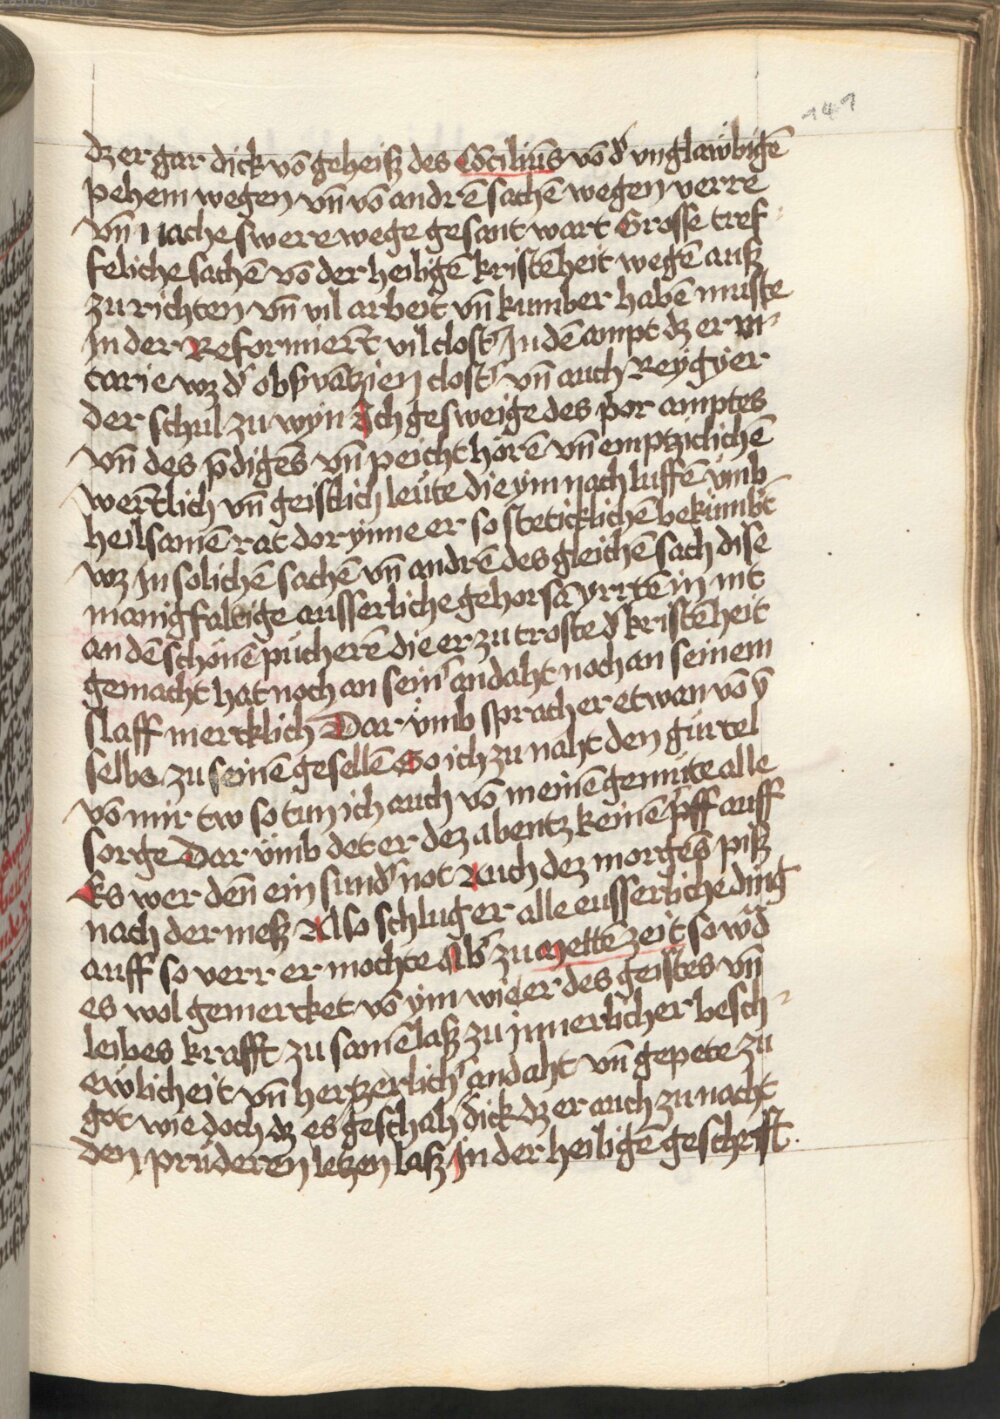 141
dz er gar dick vō geheiß des Cōciliūs vō dˀ vnglawbigē
pehem wegen vn̄ vō andrē sachē wegen verre
vn̄ nache swere wege gesant wart Grosse tref
feliche sachē vō der heiligē kristēheit wegē auß
zu richten vn̄ vil arbeit vn̄ kumber habē muste
In der Reformiert vil clostˀ In dē ampt dz er vi
carie wz dˀ obsˀvātzien clostˀ vn̄ auch Reygyer
der schul zu wyn Ich gesweige des por amptes
vn̄ des p̄digēs vn̄ peicht hörē vn̄ emptziclichē
werltlich vn̄ geistlich leute die ym nach luffē vmb
heilsamē rat dor ynne er so steticklichē bekumbˀt
wz In solichē sachē vn̄ andrē des gleichē sach dise
manigfaltige ausserliche gehorsā yrrtē in nit
an dē schönē pücherē die er zu troste dˀ kristēheit
gemacht hat noch an seinˀ andaht noch an seinem
slaff mercklich Dar vmb sprach er etwan vō ȳ
selbs zu seinē gesellē So ich zu naht den gürtel
vō mir tw so tun ich auch vō meinē gemüte alle
sorge Dar vmb det er dez abentz keinē pff auff
Es wer denn ein sundˀ not Auch dez morgēs piß
nach der meß Also schlug er alle eusserliche ding
auff so verr er mochte Abˀ zu mettē zeit so wˀd
es wol gemercket vō ym wie er des geistes vn̄
leibes krafft zu samē laß zu jnnerlicher besch
ewlicheit vn̄ hertzerlichˀ andaht vn̄ gepete zu
got wie doch dz es geschah dick dz er auch zu nacht
den prüderen letzen laß In der heiligē geschrift.